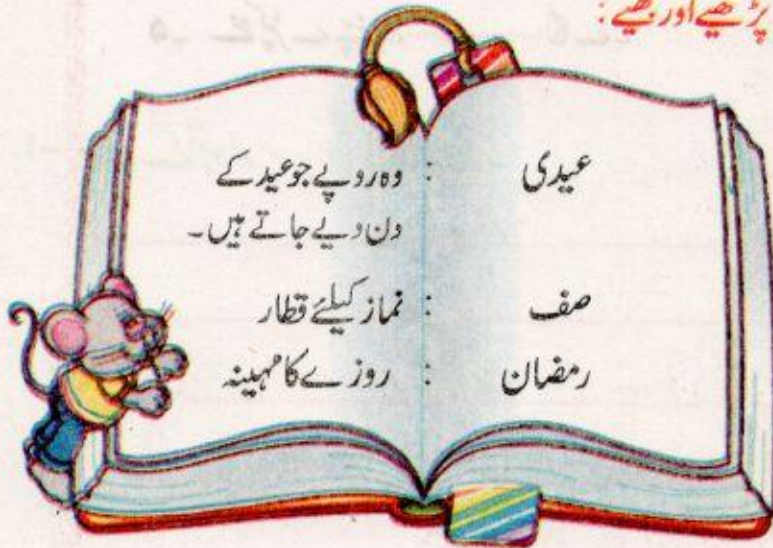 پڑھیے اور سمجھیے:
عیدی : وہ روپے جو عید کے
دن دیے جاتے ہیں۔
صف : نماز کیلئے قطار
رمضان : روزے کا مہینہ